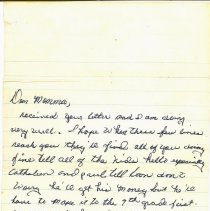 Dear Momma,
received your letter and I am doing
very well. I hope when these few lines
reach you they'll find all of you doing
fine tell all of the kids hello especially
Cathleen and paul tell Leon don't
worry he'll get his money but he'll
have to make it to the 7th grade first.